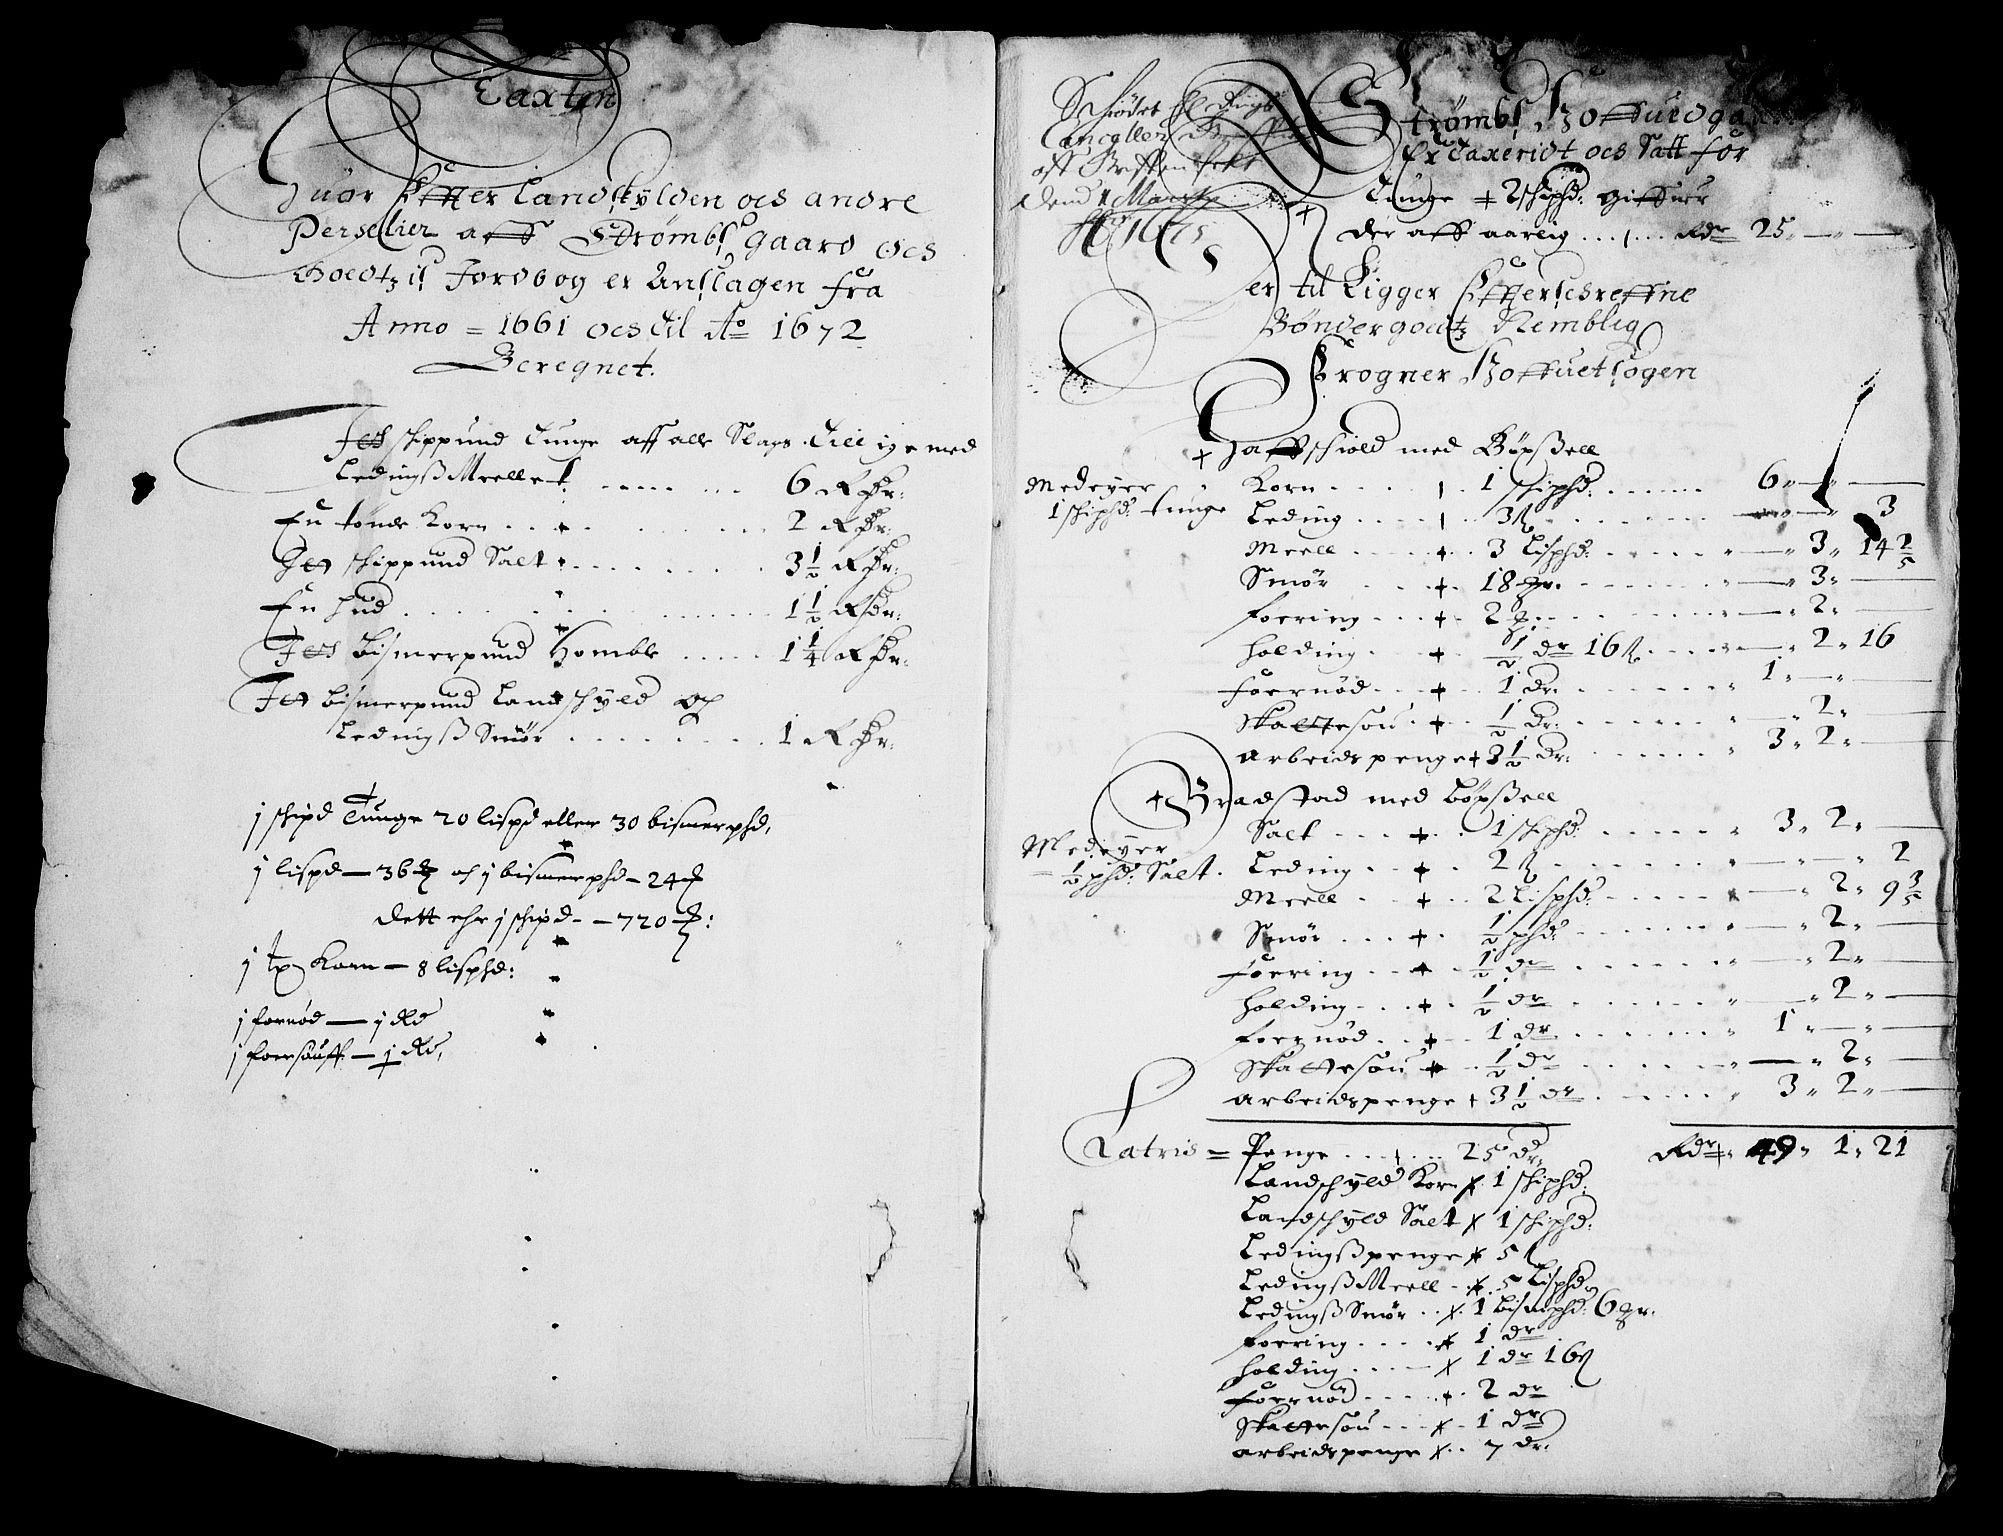 Taxten
Huor Effter Landskylden och andre
Perselier aff Strømbs gaard och
Goedtz is Jordbog er Anslagen fra
Anno = 1661 och til Ao 1672
Beregnet.
Jtt schippund Tunge aff alle Slags
Ledingß Meell 6 Rdr:
En tønde Korn 2 Rdr:
Jtt schippund Salt 3 1/2 Rdr:
En hud 1 1/2 Rdr:
Jtt Bismerpund Homble 1 1/4 Rdr:
Jtt bismerpund Landschyld och
Ledingß Smør 1 Rdr:
j schipd Tunge 20 lispd eller 30 bismerphd,
j lispd — 36 och j bismerphd — 24
dett ehr j schipd — 720
j Korn — 8 lisphd:
j fornød — j Rd
j foersauff — Rd,
Dend 1 Martii
Ao 1675
Strømbs Hoffuidga
Er Taxeridt och Satt for
Tunge + 2 schiphd: Giffuer
der aff aarlig Rdr 25
Der til Ligger Effterschreffne
Bøndergoedtz Nemblig
Frogner Hoffuetsogen
+ Haffschiold med Böxßell
Medeyer
1 schiphd: tunge
Korn 1 schiphd: 6
Leding 3 ß 3
Meell + 3 lisphd: 3 14 2/5
Smør + 18 3
foering + 2 2
holding + 1/2 dr 16 ß 2 16
foernød + 1 dr: 1
Skattesou + 1/2 dr: 2
arbeidspenge + 3 1/2 dr: 3 2
+ Bradstad med böxßell
Medeyer
1/2 phd: Salt.
Salt + 1 schiphd: 3 2
Leding + 2 ß 2
Meell + 2 lisphd: 2 9 3/5
Smør + 1/2 phd: 2
foering + 1/2 dr 2
holding + 1/2 dr 2
foernød + 1 dr 1
Skattesou + 1/2 dr 2
arbeidspenge + 3 1/2 dr 3 2
Latris = Penge 25 dr: Rdr 49 1 21
Landschyld Korn 1 schiphd:
Landschyld Salt 1 schiphd:
Ledingßpenge 5 ß
Ledingß Meell 5 lisphd
Ledingß Smør 1 bismphd: 6
foering 1 dr
holding 1 dr 16 ß
foernød 2 dr
Skattesou 1 dr
arbeidspenge 7 dr: